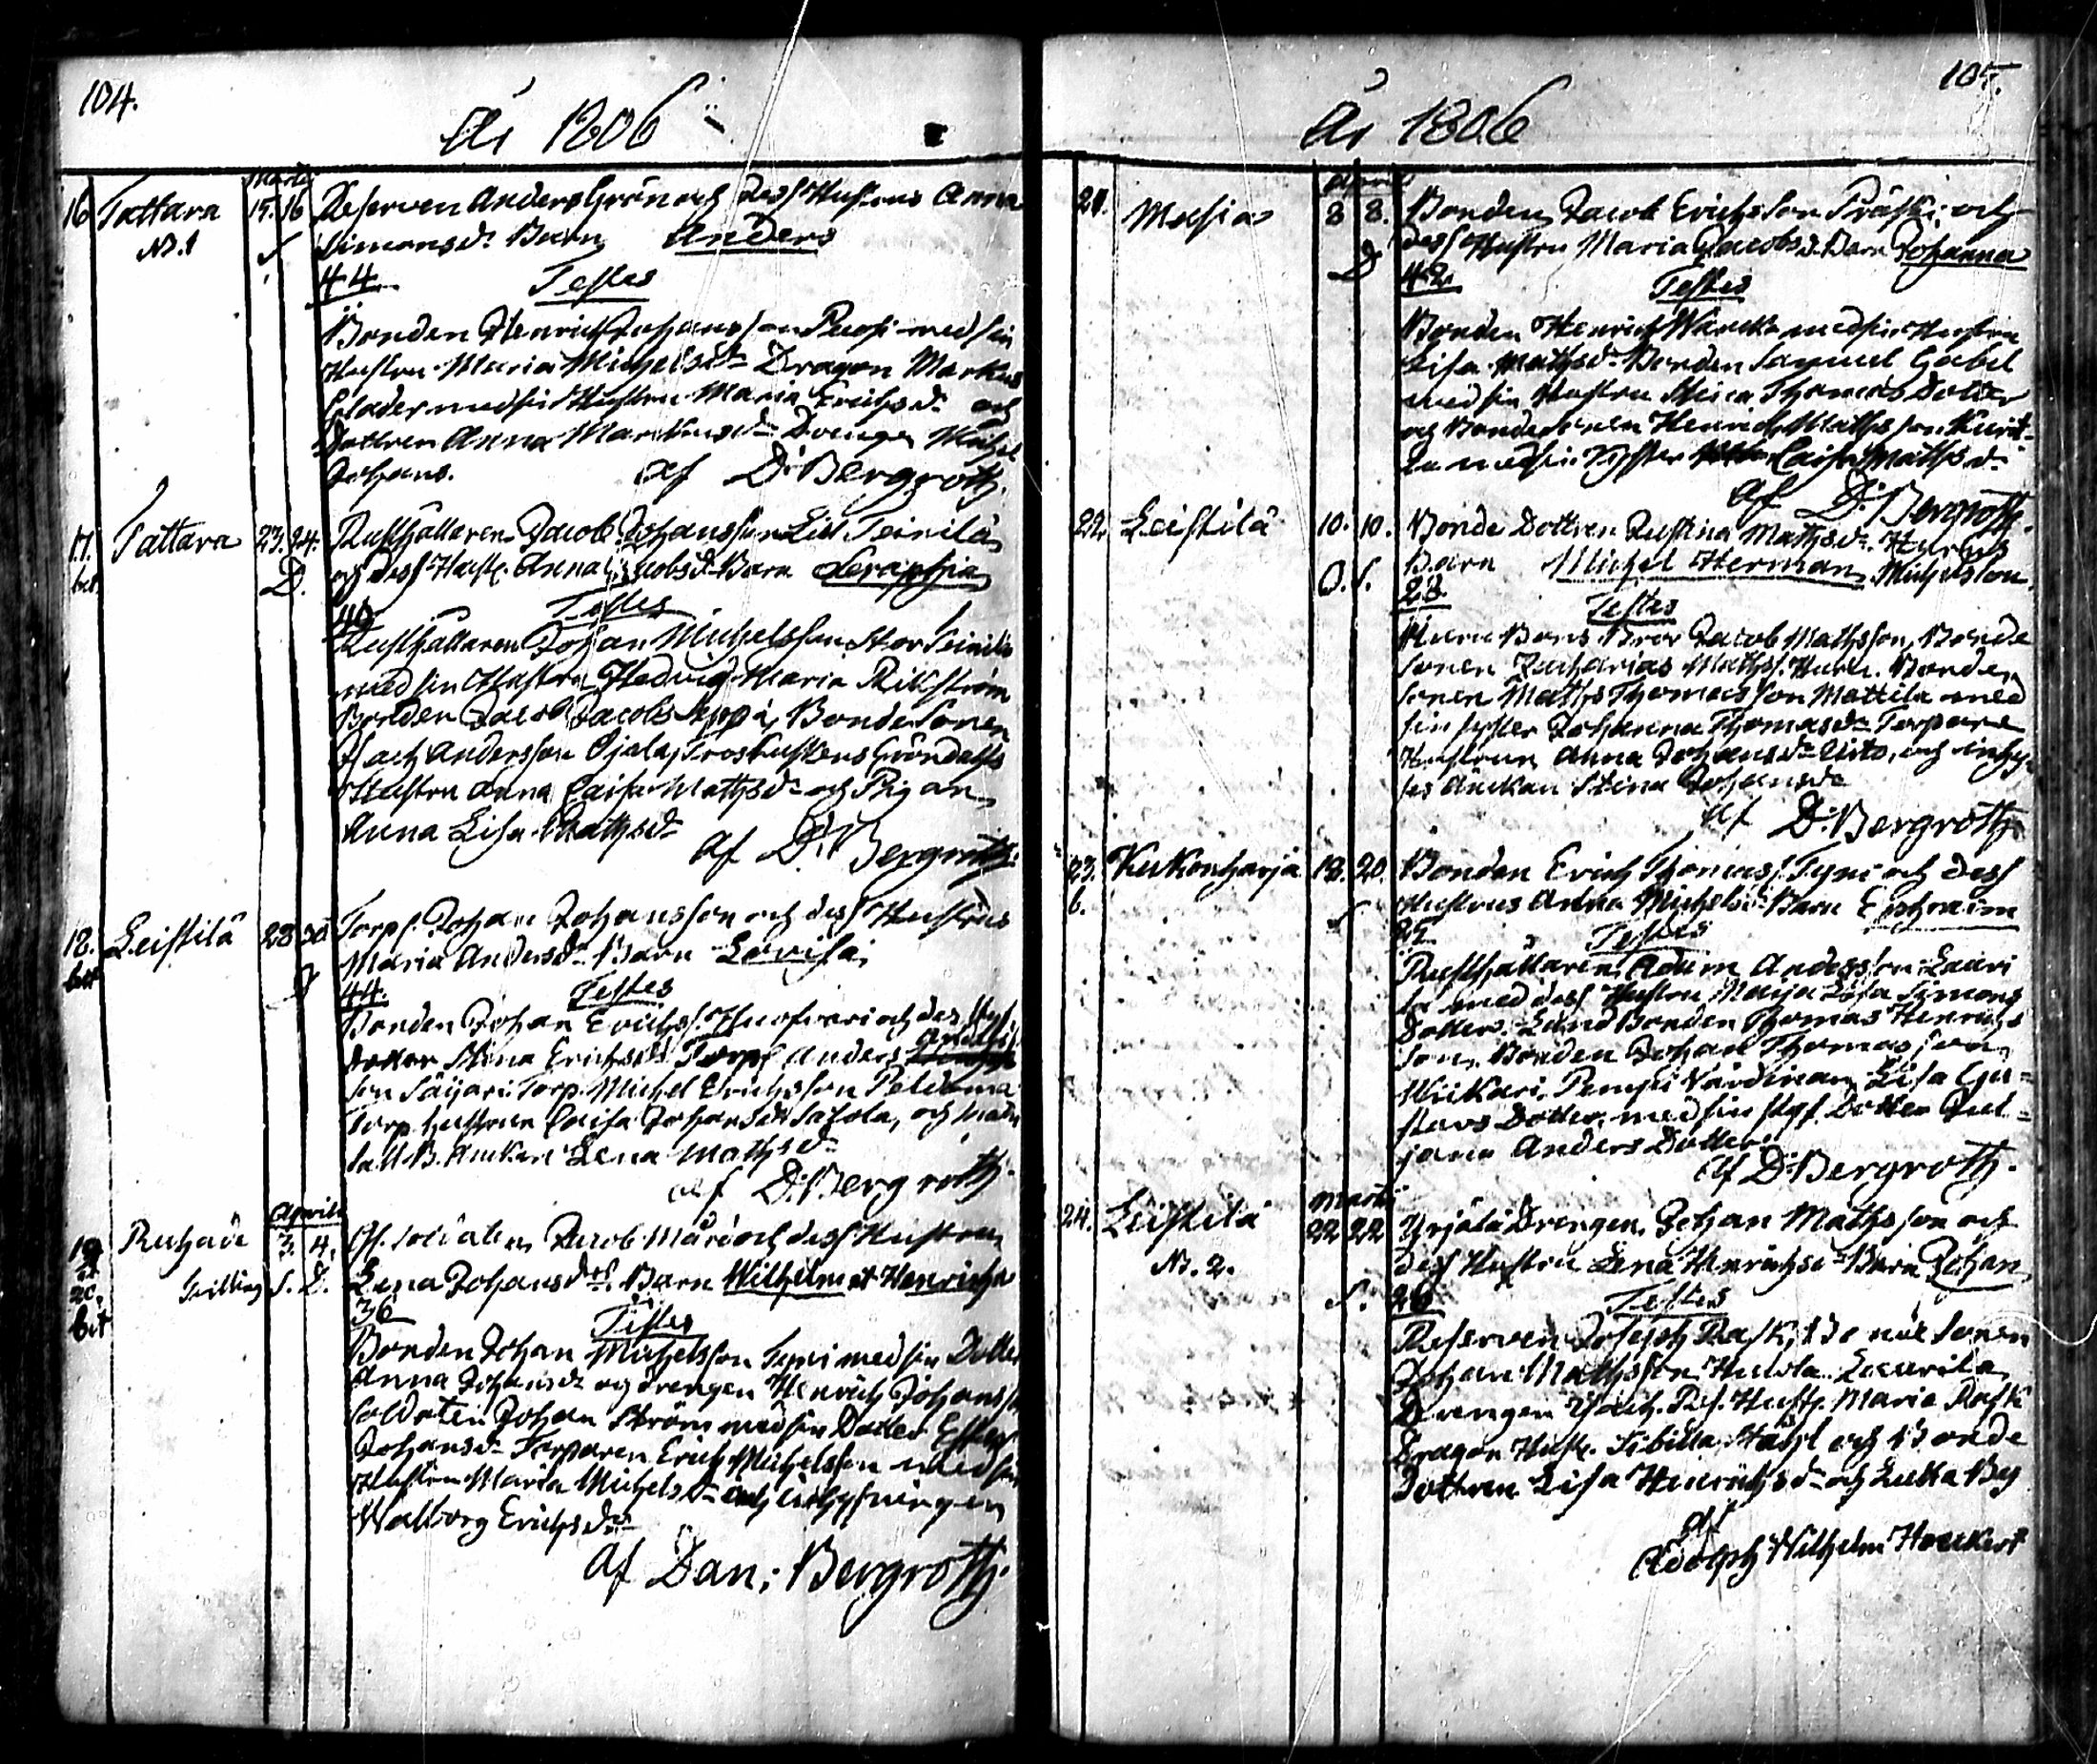 104.
År 1806
Martii
16 Tattara 15. 16 Reserven Anders Grön och dess Hustrus Anna
N:1 S Simonsd:r Barn Anders
44 Testes
Bonden Henrich Johansson med sin
Hustru Maria Michelsd:r Dragon Markus
med sin Hustru Maria Erichsd:r och
Dottren Anna Markusd:r Drengen Michel
Johans.
af D: Bergroth.
17. Tattara 23. 24. Rusthållaren Jacob Johansson Lill Teinilä
bet D. och dess Hustr. Anna Jacobsd:r Barn Seraphia
40 Testes
Rusthållaren Johan Michelsson Stor Teinilä
med sin Hustru Hedvig Maria Rikström
Bonden Jacob Jacobs Seppä, Bonde Sonen
Isach Andersson Ojala, Gröndahls
Hustru Anna Caisa Mathsd:r och Pigan
Anna Lisa Mathsd:r
af D: Bergroth.
18. Leistilä 28 30 Torp. Johan Johansson och dess Hustrus
bet D Maria Andersd:r Barn Lovisa
44. Testes
Bonden Johan Erichs. och des
dotter Stina Erichsd:r Torp. Anders
son Säijari. Torp. Michel Erichsson
Torp. hustrun Caisa Johansd:r Salola, och
Enkan Lena Mathsd:r
af D: Bergroth.
Aprill
19 Ruhade 3. 4. Soldaten Jacob Mård och dess Hustrun
20. Tvilling S. D. Lena Johansd:rs Barn Wilhelm et Henrich
bet 36 Testes
Bonden Johan Michelsson Tyni med sin Dotter
Anna Johansd:r og drengen Henrich Johansson
Soldaten Johan Ström med sin Dotter Ester
Johansd:r Torparen Erich Michelsson med sin
Hustru Maria Michelsd:r och inhysningen
Walborg Erichsd:r
af Dan: Bergroth.
105.
År 1806
April
21. Masia 8 8. Bonden Jacob Erichsson Präski och
dess Hustru Maria Jacobsd: Barn Johanna
D 42 Testes
Bonden Henrich med sin Hustru
Lisa Mathsd:r Bonden Samuel Gabel
med sin Hustru Stina Thomas Dotter
og Bondesonen Henrich Mathsson Kurit-
tu med sin Syster Caisa Mathsd:
af D: Bergroth.
22. Leistilä 10. 10. Bonde Dottren Justina Mathsd:r
Barn Michel Herman Michelsson
O. S. 23. Testes
Bror Jacob Mathsson, Bonde
Sonen Zacharias Mathss. Bonden
Sonen Mathts Thomasson Mattila med
sin syster Johanna Thomasd:r Torpare
Hustrun Anna Johansd:r och inhys-
es Änckan Stina Johansd:r
af D: Bergroth
23. Kukonharja 18. 20. Bonden Erich Thomass. Tyni och dess
b. Hustrus Anna Michelsd:r Barn Ephraim
S 29 Testes
Rusthållaren Adam Andersson Lauri
la med dess Hustru Maija Lisa Simons
Dotter. Land Bonden Thomas Henrichs
son, Bonden Johan Thomasson
Wiikari. Pempu Värdinan Lisa Gu=
stavs Dotter, med sin styf Dotter Jul=
jana Anders Dotter.
af D: Bergroth.
Martii
24. Leistilä 22 22 Yrjälä Drengen Johan Mathsson och
N:2. dess Hustru Lena Henrichsd:r Barn Johan
S. 26 Testes
Reserven Joseph Rask, Bonde Sonen
Johan Mathsson Huvola. Laurila
Drengen Isach. Res. Hustr. Maria Rask
Dragon Hustr. Sibilla Ståhl och Bonde
Dottren Lisa Henrichsd:r och Lutta By
af
Adolph Wilhelm Hockert